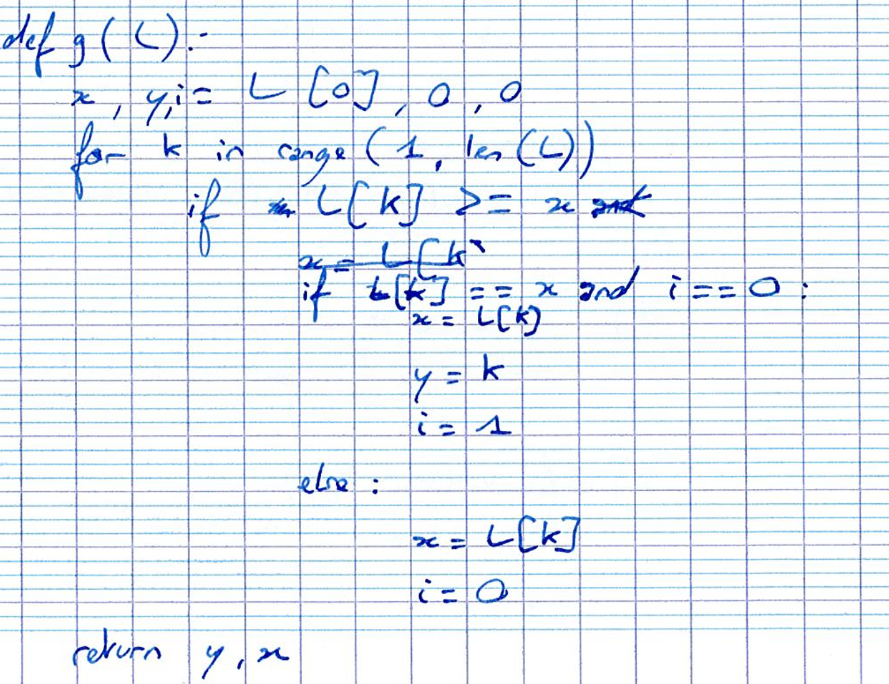 def g(L):
x, y,i = L[0], 0, 0
for k in range(1, len(L))
if L[k] >= x and
x = L[k
if L[k] == x and i == 0 :
x = L[k]
y = k
i = 1
else :
x = L[k]
i = 0
return y, x